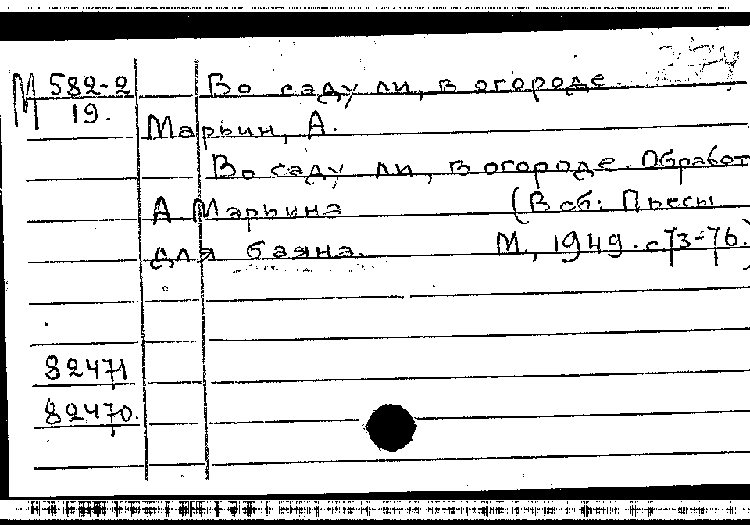 М 582-2 Во саду ли, в огороде.
19.
Марьин, А.
Во саду ли, в огороде. Обработ
А Марьина (В сб: Пьесы
для баяна. М., 1949. с 73-76.)
82471
82470.